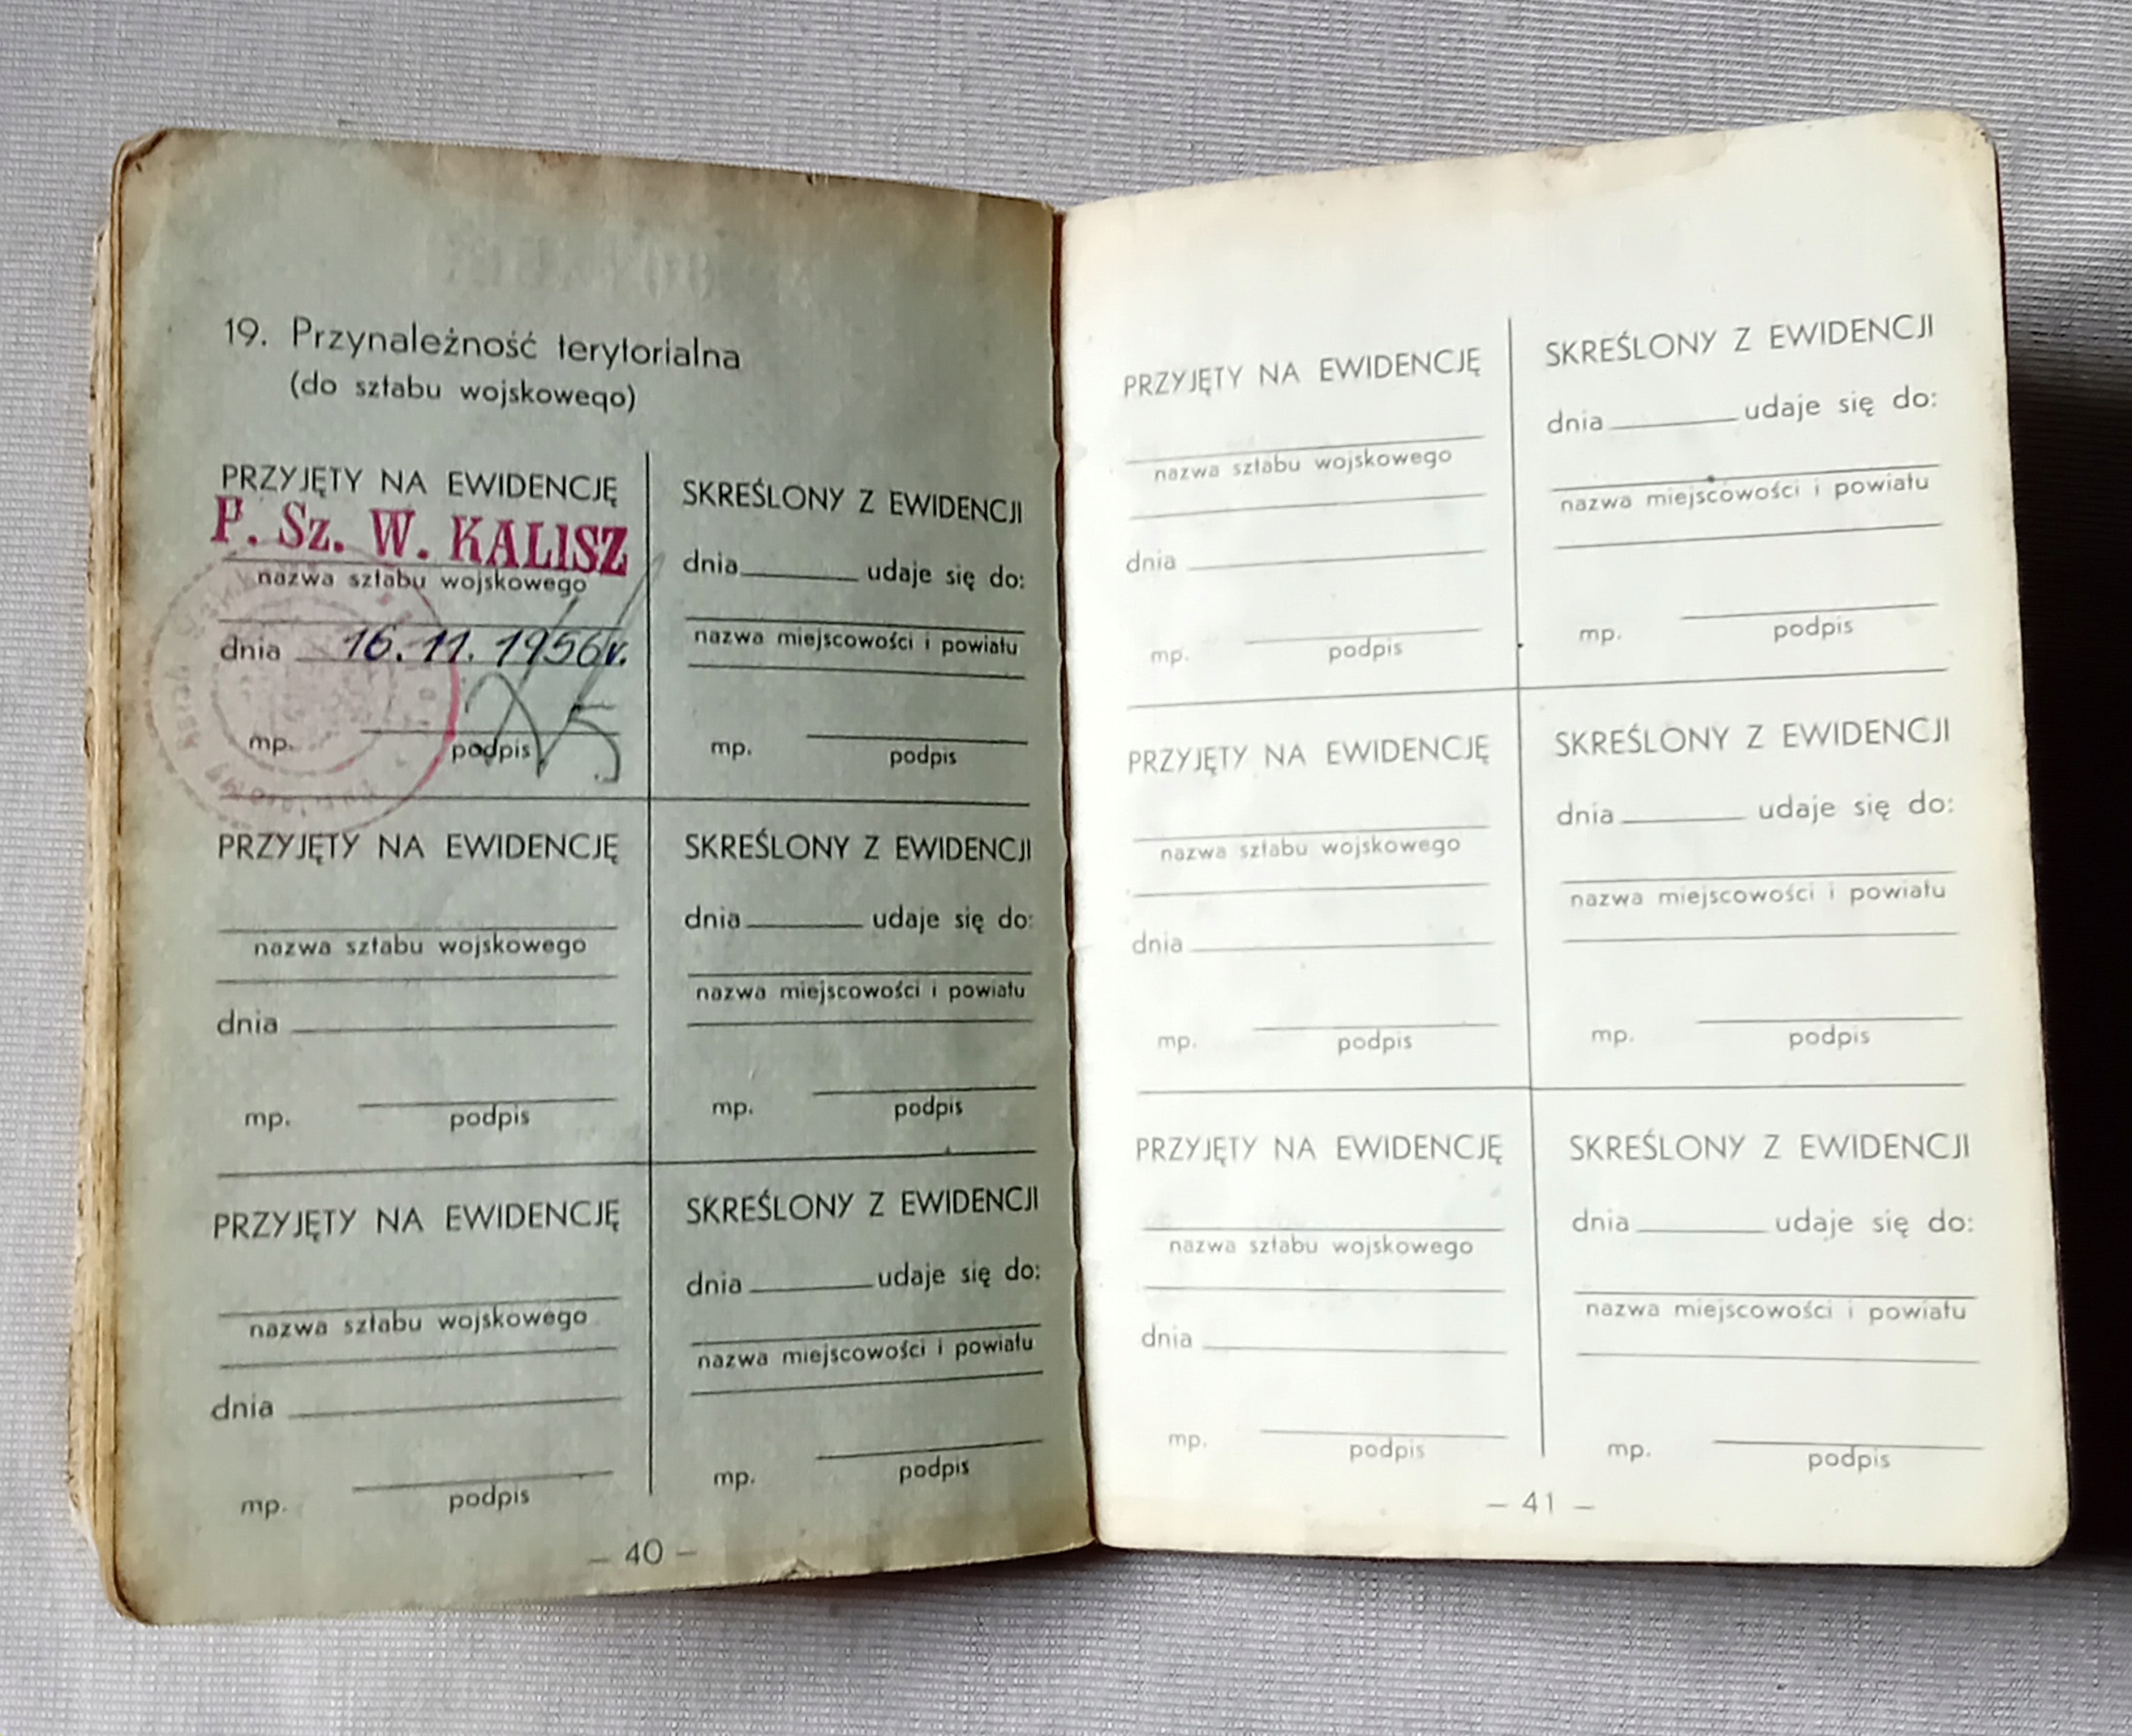 19. Przynależność terytorialna
(do sztabu wojskowego)
PRZYJĘTY NA EWIDENCJĘ
P. Sz. W. KALISZ
nazwa sztabu wojskowego
dnia 16. 11. 1956 r.
mp. podpis
SKREŚLONY Z EWIDENCJI
dnia udaje się do:
nazwa miejscowości i powiatu
mp. podpis
PRZYJĘTY NA EWIDENCJĘ
nazwa sztabu wojskowego
dnia
mp. podpis
SKREŚLONY Z EWIDENCJI
dnia udaje się do:
nazwa miejscowości i powiatu
mp. podpis
PRZYJĘTY NA EWIDENCJĘ
nazwa sztabu wojskowego
dnia
mp. podpis
SKREŚLONY Z EWIDENCJI
dnia udaje się do:
nazwa miejscowości i powiatu
mp. podpis
– 40 –
PRZYJĘTY NA EWIDENCJĘ
nazwa sztabu wojskowego
dnia
mp. podpis
SKREŚLONY Z EWIDENCJI
dnia udaje się do:
nazwa miejscowości i powiatu
mp. podpis
PRZYJĘTY NA EWIDENCJĘ
nazwa sztabu wojskowego
dnia
mp. podpis
SKREŚLONY Z EWIDENCJI
dnia udaje się do:
nazwa miejscowości i powiatu
mp. podpis
PRZYJĘTY NA EWIDENCJĘ
nazwa sztabu wojskowego
dnia
mp. podpis
SKREŚLONY Z EWIDENCJI
dnia udaje się do:
nazwa miejscowości i powiatu
mp. podpis
– 41 –